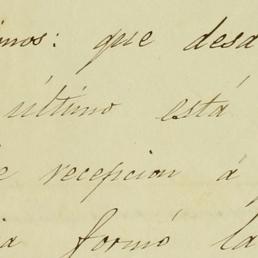 inos: que desd
último está
e recepcion á
ia formó la